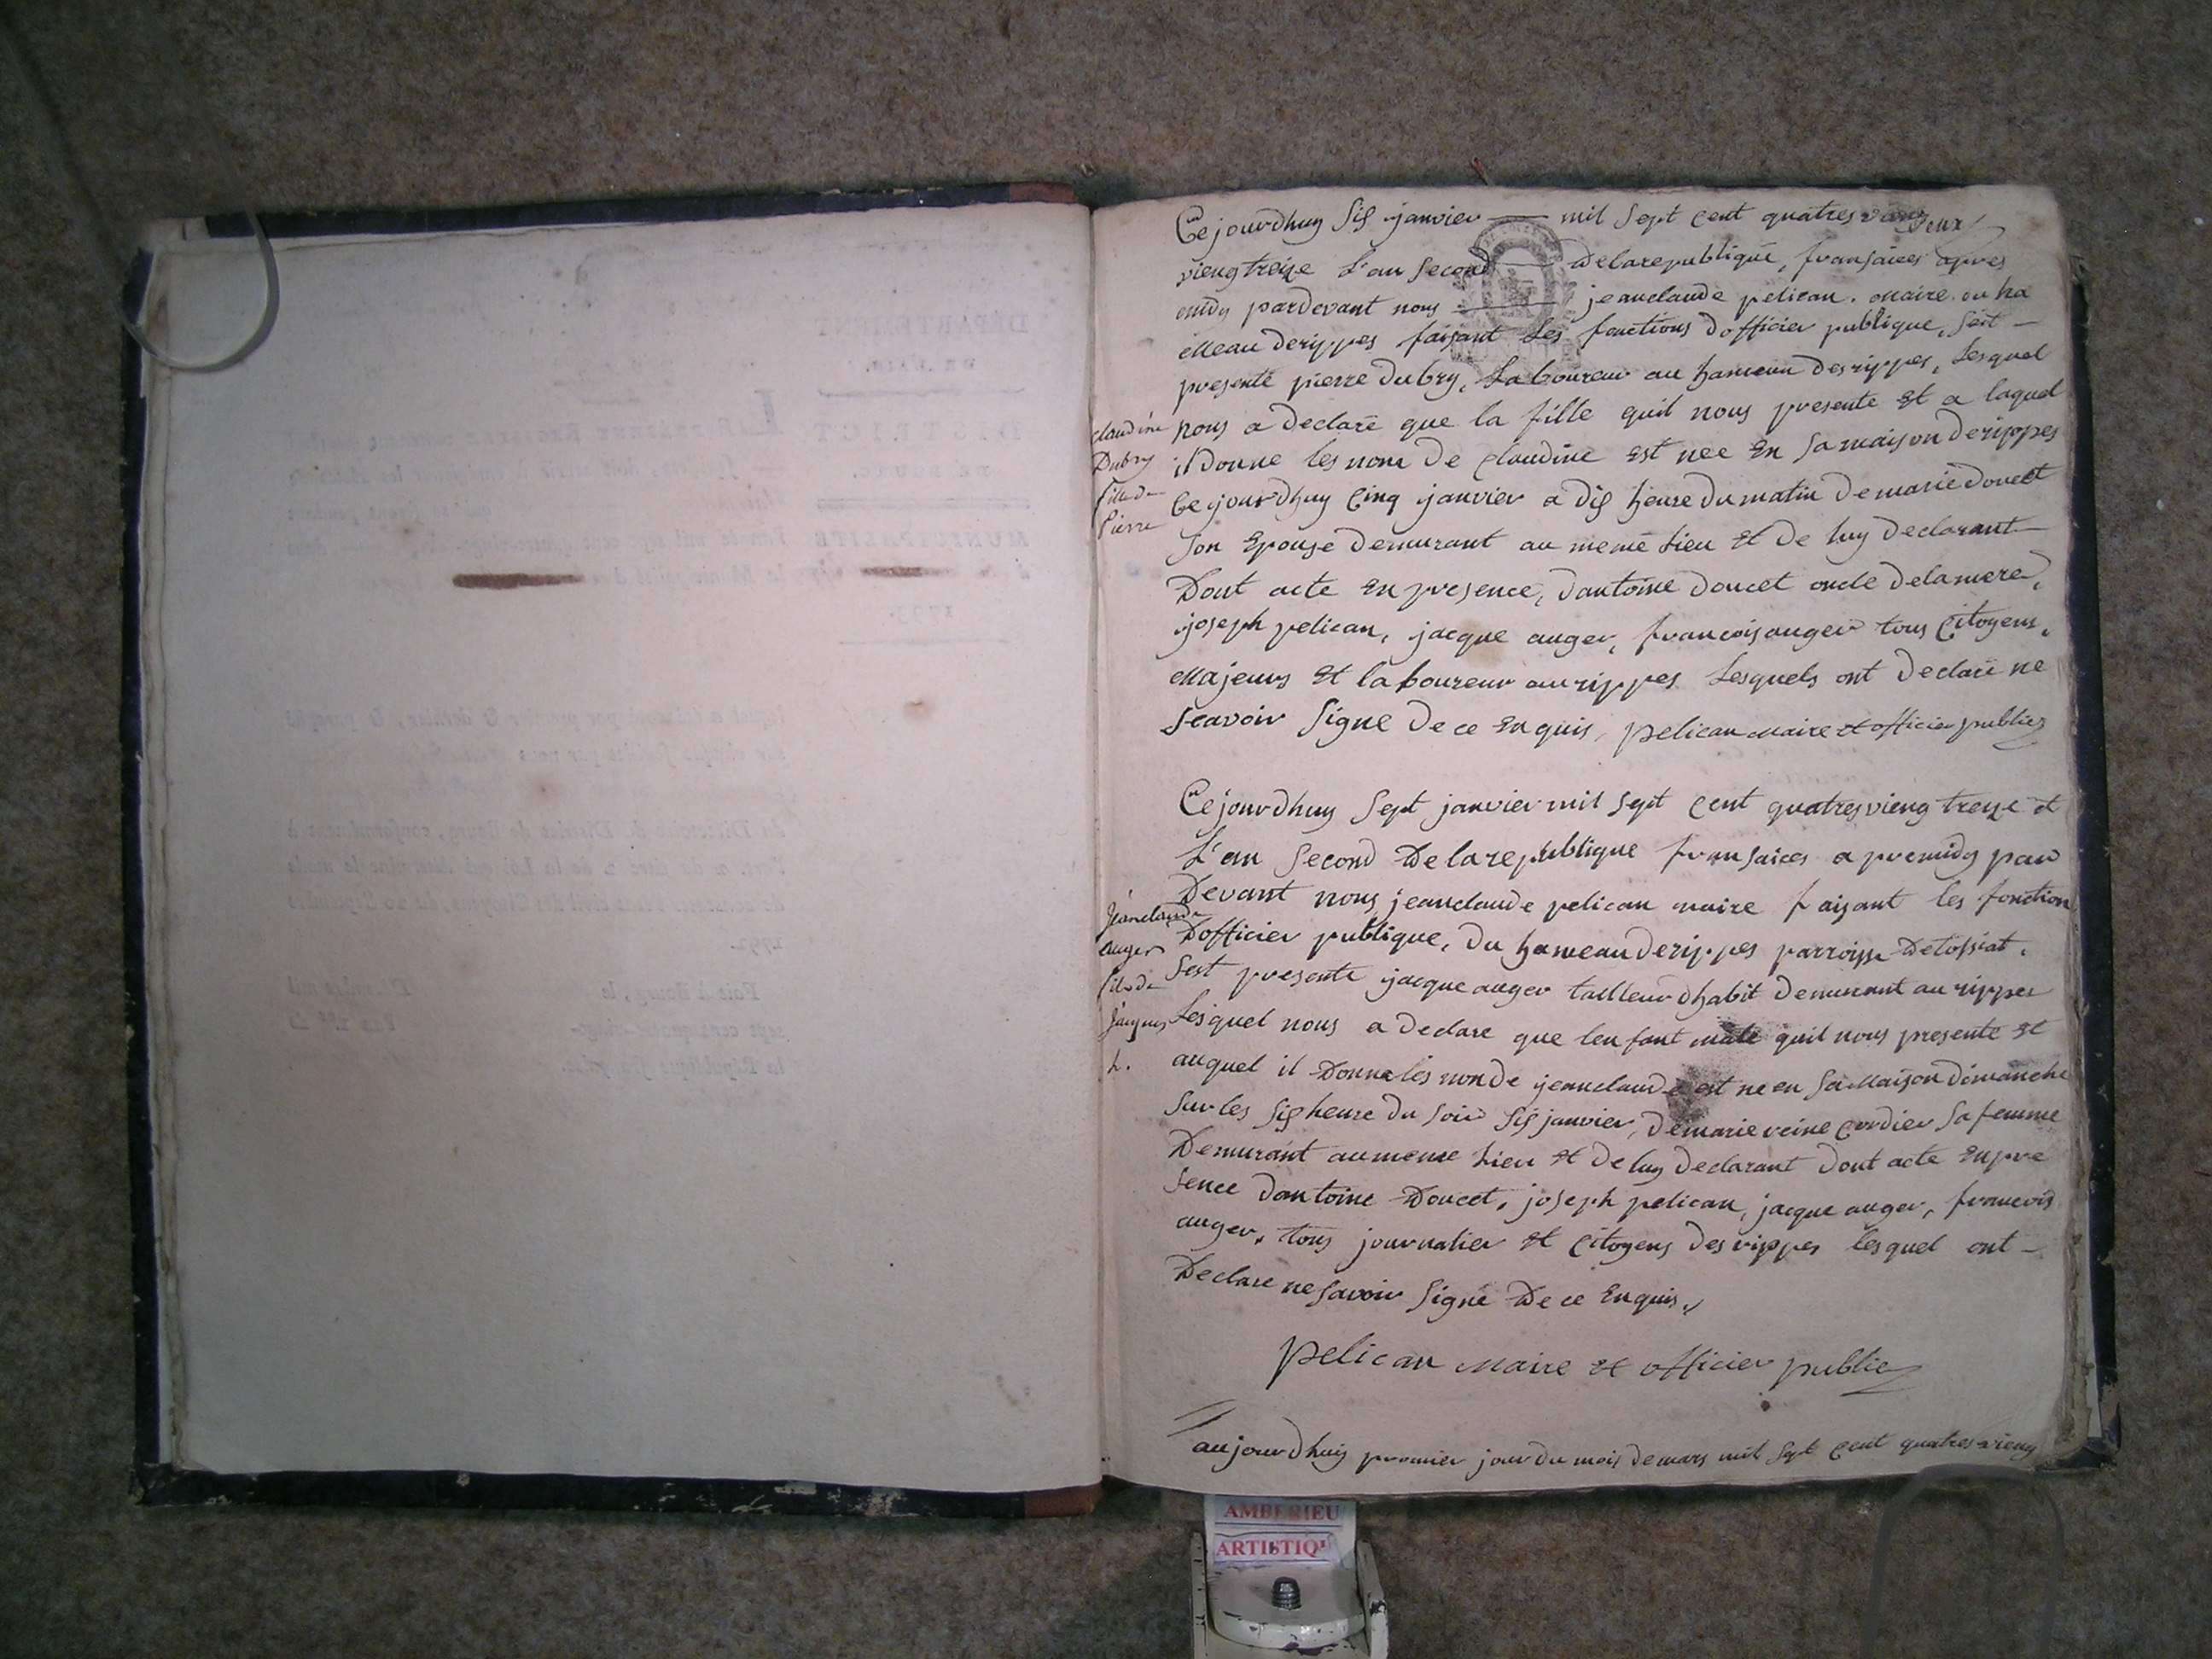 Ce jourdhuy Sis janvier — mil Sept Cent quatres vieng
vieng treize L'an Second — De la republique, fransaices apres
midy pardevant nous — jeanclaude pelican. Maire. au ha
Meau de rippes faisant les fonctions Dofficier publique, sest —
presenté pierre Dubry, Laboureur au hameau des rippes, Lesquel
nous a Declaré que la fille quil nous presente Et a laquel
il Donne les nom De Claudine Est nee En Sa maison de rippes
Ce jourdhuy Cinq janvier a Dis heure Du matin De marie Doucet
Son Epouse Demurant au meme Lieu Et De luy Declarant —
Dont acte En presence, Dantoine Doucet oncle De la mere,
joseph pelican, jacque auger, francois auger tous Citoyens,
Majeurs Et laboureur au rippes Lesquels ont Declaré ne
Scavoir Signe De ce Enquis, pelican Maire et officier public
claudine
Dubry
fille de
Pierre
Ce jourdhuy Sept janvier mil Sept Cent quatres vieng treize et
L'an Second De la republique fransaices apremidy par
Devant nous jeanclaude pelican maire faisant les fonction
Dofficier publique, Du hameau de rippes parroisse De tossiat.
Sest presente jacque auger tailleur Dhabit Demurant au rippes
Lesquel nous a Declare que lenfant mâle quil nous presente Et
auquel il Donne les nom De jeanclaude est ne en Sa Maison Dimanche
Sur les Sis heure Du Soir Sis janvier, De marie reine Cordier Sa femme
Demurant au meme Lieu Et De luy Declarant Dont acte En pre
Sence Dantoine Doucet, joseph pelican, jacque auger, francois
auger, tous journalier Et Citoyens Des rippes lesquel ont —
Declare ne Savoir Signé De ce Enquis,
Jeanclaude
auger
fils de
Jacques
pelican Maire et officier public
aujourdhuy premier jour du mois De mars mil Sept Cent quatres vieng
AMBERIEU
ARTISTIQU